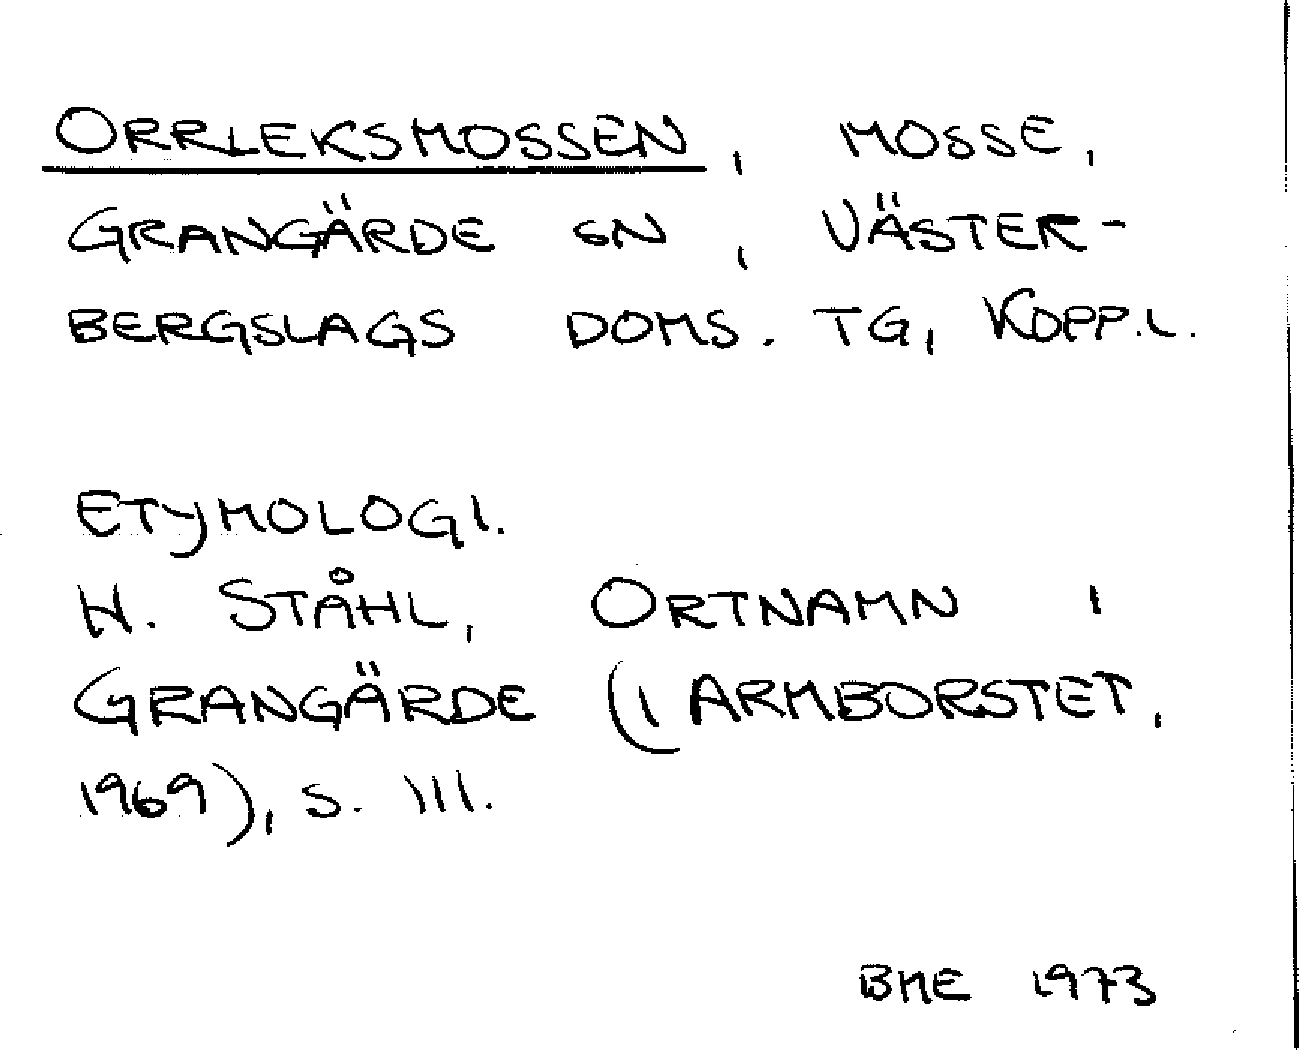 ORRLEKSMOSSEN, MOSSE,
GRANGÄRDE SN, VÄSTER-
BERGSLAGS DOMS. TG, KOPP.L.
ETYMOLOGI.
H. STÅHL, ORTNAMN I
GRANGÄRDE (I ARMBORSTET,
1969), S. 111.
BME 1973